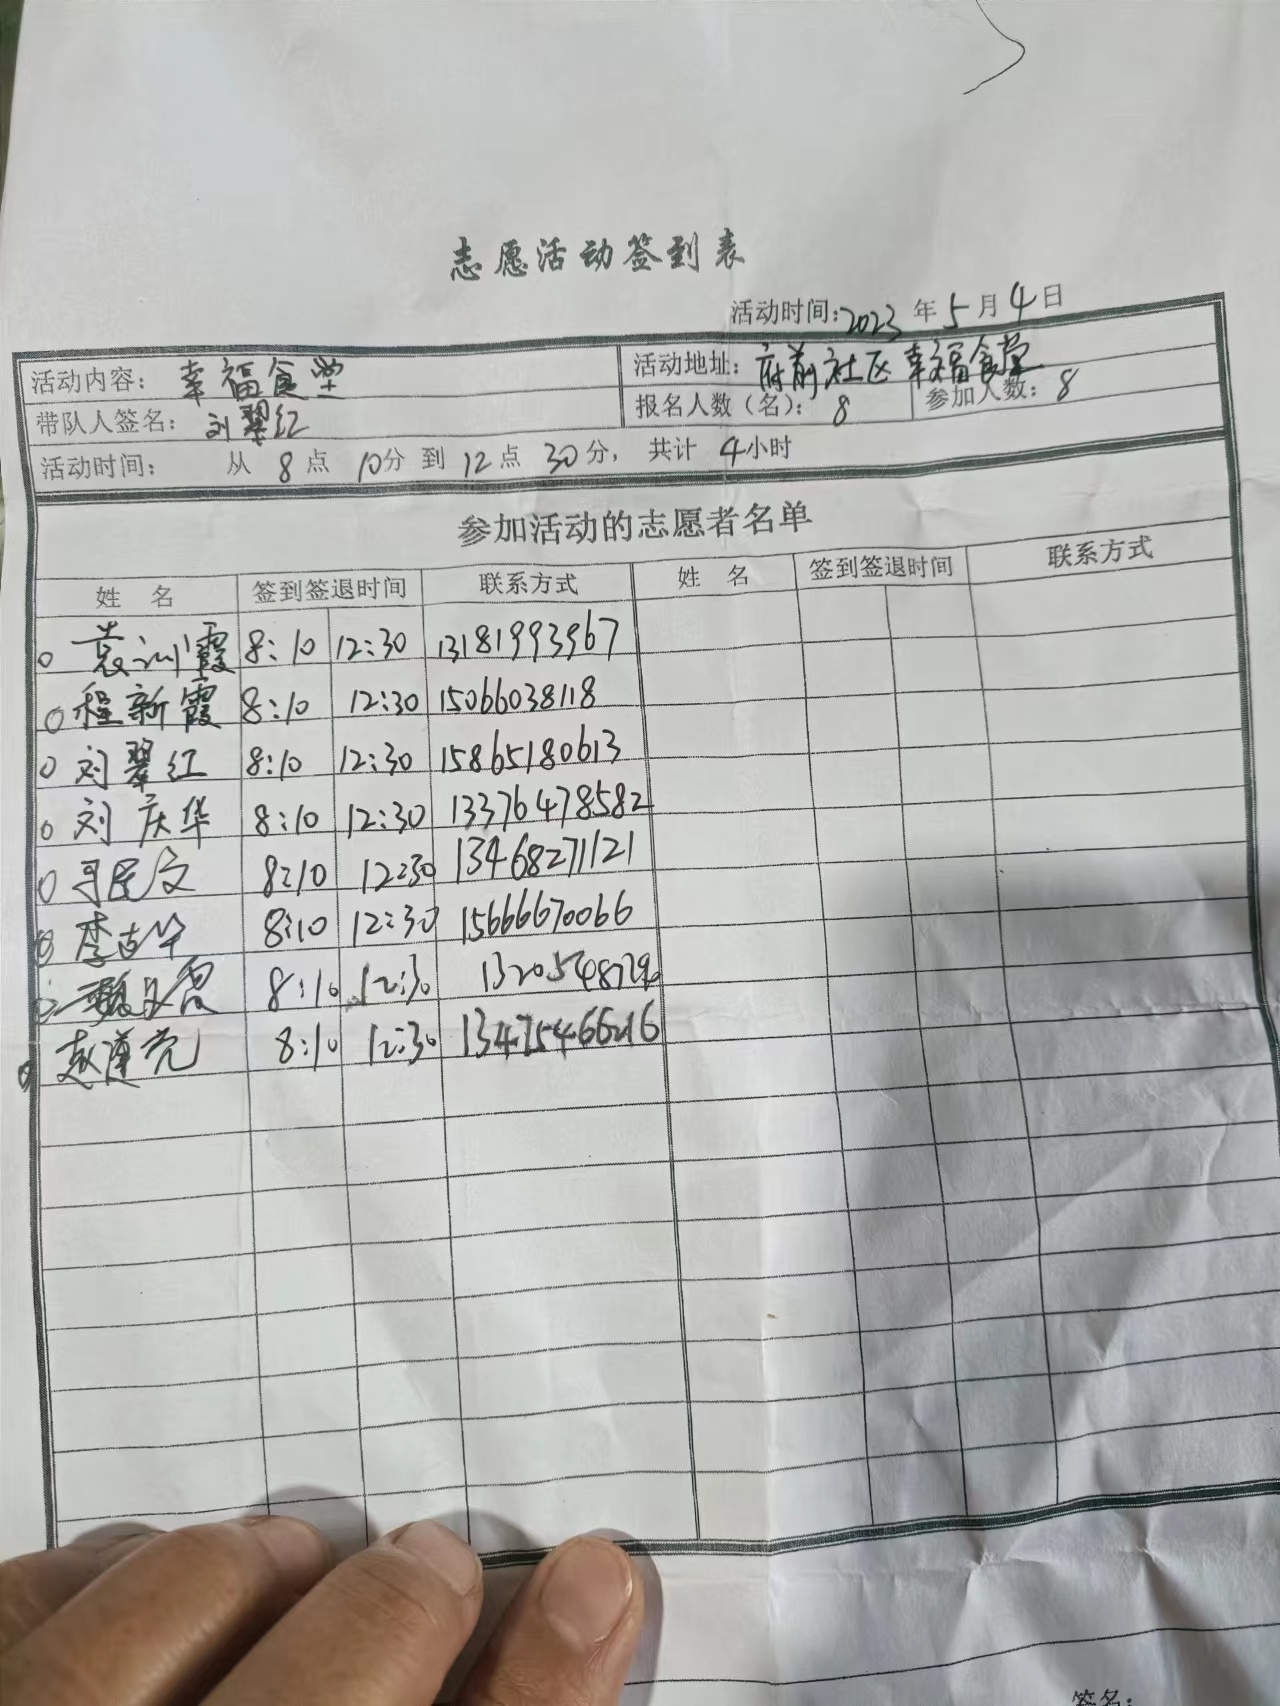 志愿活动签到表
活动时间:2023年5月4日
活动内容: 幸福食堂 活动地址: 府前社区幸福食堂
带队人签名: 刘翠红 报名人数(名): 8 参加人数: 8
活动时间: 从8点10分到12点30分, 共计4小时
参加活动的志愿者名单
姓 名 签到签退时间 联系方式 姓 名 签到签退时间 联系方式
霞 8:10 12:30 13181993967
程新霞 8:10 12:30 15066038118
刘翠红 8:10 12:30 15865180613
刘庆华 8:10 12:30 13376478582
8:10 12:30 13468271121
李 8:10 12:30 15666670066
8:10 12:30
8:10 12:30 13475466216
签名: